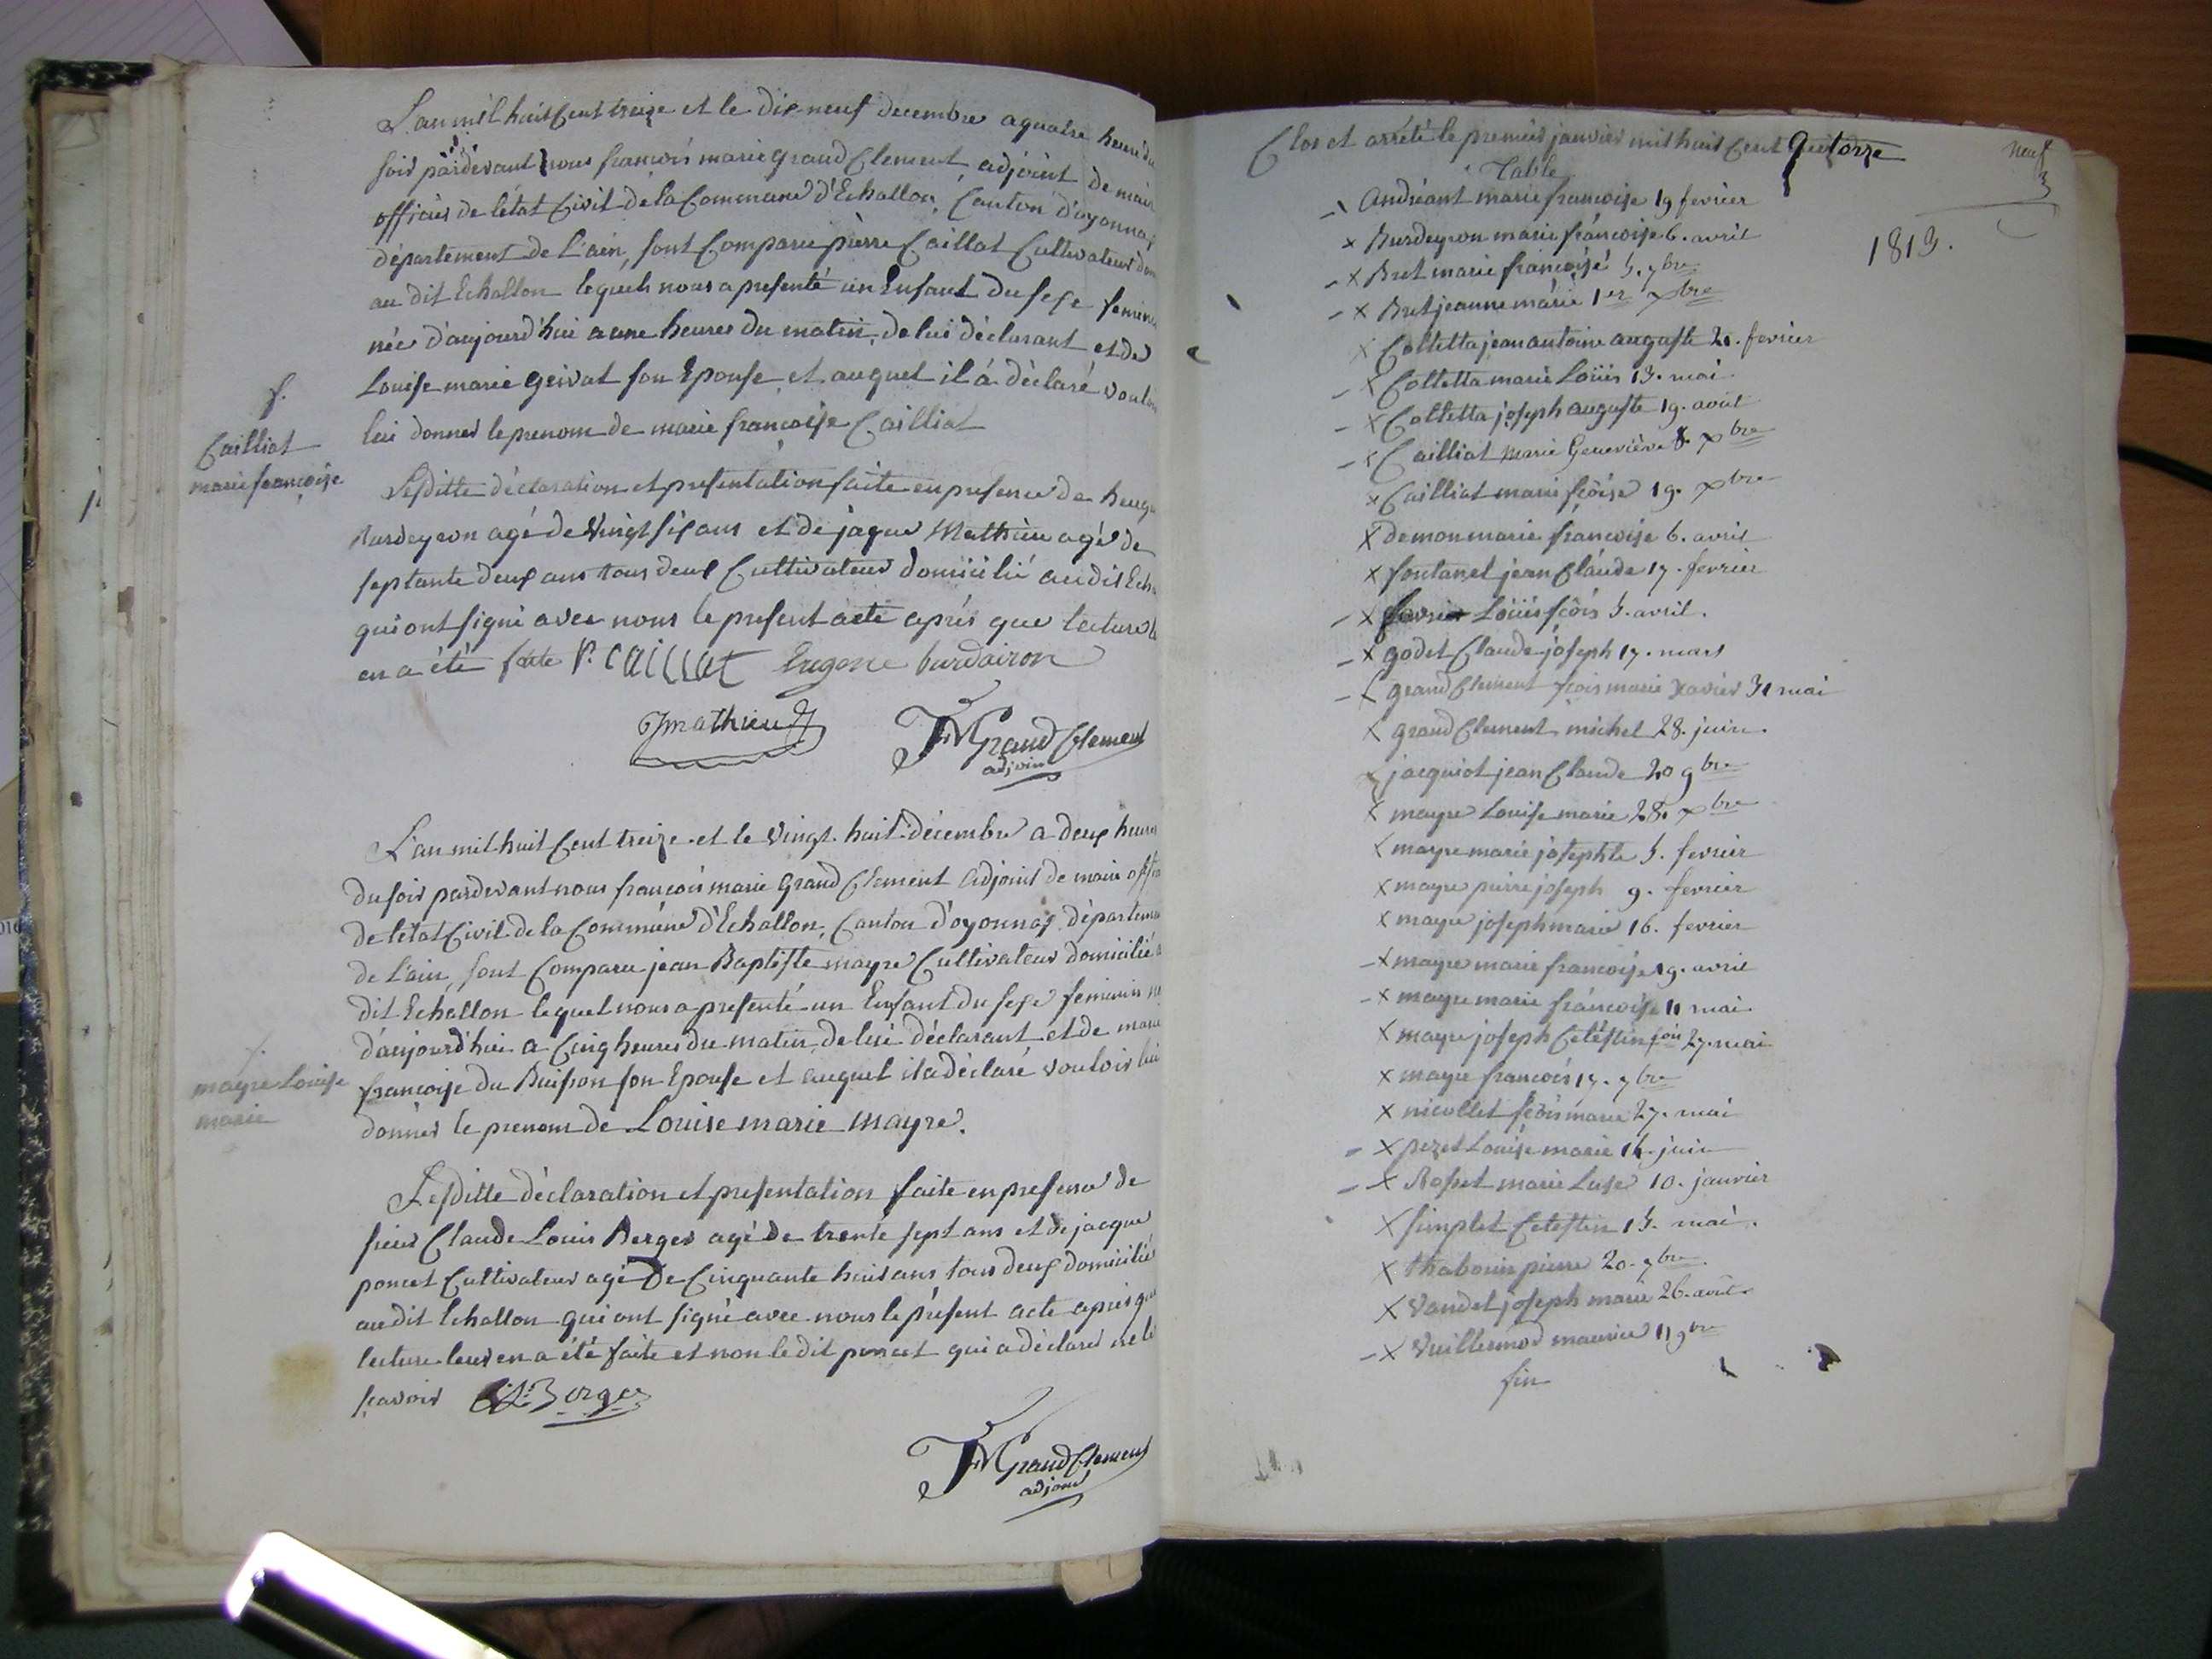 L'an mil huit Cent treize et le dix neuf decembre a quatre heure du
soir pardevant nous francois marie grand Clement, adjoint de mair
officier de l'état Civil de la Commune d'Echallon, Canton d'oyonnax
département de L'ain, sont Comparu pierre Caillat Cultivateur dom
au dit Echallon lequels nous a presenté un Enfant du sexe femin
née d'aujourd'hui a une heures du matin, de lui déclarant et de
Louise marie grivat son Epouse et auquel il a déclaré voulo
lui donner le prenom de marie francoise Cailliat
f.
Cailliat
marie francoise
Lesditte déclaration et presentation faite en presence de
Burdeyron agé de vingt six ans et de jaque Mathieu agé de
septante deux ans tous deux Cultivateur domicilié audit Ech
qui ont signé avec nous le present acte aprés que lecture
en a été faite P. CAILLAT Eugene burdairon
Jmathieu
FMGrand Clement
adjoint
L'an mil huit Cent treize et le vingt huit décembre a deux heures
du soir pardevant nous francois marie grand Clement adjoint de maire offi
de l'état Civil de la Commune d'Echallon, Canton d'oyonnax département
de L'ain, sont Comparu jean Baptiste mayre Cultivateur domicilié a
dit Echallon lequel nous a presenté un Enfant du sexe feminin
d'aujourd'hui a Cinq heures du matin, de lui déclarant et de marie
francoise du Buisson son Epouse et auquel il a déclaré vouloir lui
donner le prenom de Louise marie mayre.
mayre Louise
marie
Lesditte déclaration et presentation faite en presence de
sieur Claude Louis Berger agé de trente sept ans et de jacque
poncet Cultivateur agé de Cinquante huit ans tous deux domicilié
audit Echallon qui ont signé avec nous le présent acte apres que
lecture leur en a été faite et non le dit poncet qui a déclaré ne le
scavoir CL Berger
FMGrand Clement
adjoint
Clos et arrété le premier janvier mil huit Cent quatorze
neuf
3
Table
1813.
Andréant marie francoise 19 fevrier
x Burdeyron marie francoise 6. avril
- x Bret marie francoise 5. 7bre
- x Bret jeanne marie 1er xbre
x Colletta jean antoine auguste 21. fevrier
- x Colletta marie Loüis 13. mai
- x Colletta joseph auguste 19. août
- x Cailliat marie Geneviève 8. xbre
x Cailliat marie fçoise 19. xbre
x demon marie francoise 6. avril
x fontanel jean Claude 17. fevrier
- x fevrier Loüis fçois 5. avril.
- x godet Claude joseph 17. mars
- x grand Clement fçois marie xavier 31 mai
x grand Clement michel 28. juin.
x jacquiot jean Claude 20 9bre
x mayre Louise marie 28. xbre
x mayre marie josephte 5. fevrier
x mayre pierre joseph 9. fevrier
x mayre joseph marie 16. fevrier
- x mayre marie francoise 19. avril
- x mayre marie francoise 11 mai
x mayre joseph Celestin fçois 27. mai
x mayre francois 17. 7bre
x nicollet fçois marie 27. mai
- x pezet Louise marie 14. juin
- x Rosset marie Luse 10. janvier
x simplet Celestin 15. mai.
x thabouin pierre 20. 7bre
x Vandel joseph marie 26. août
- x Vuillermod maurice 11 9bre
fin